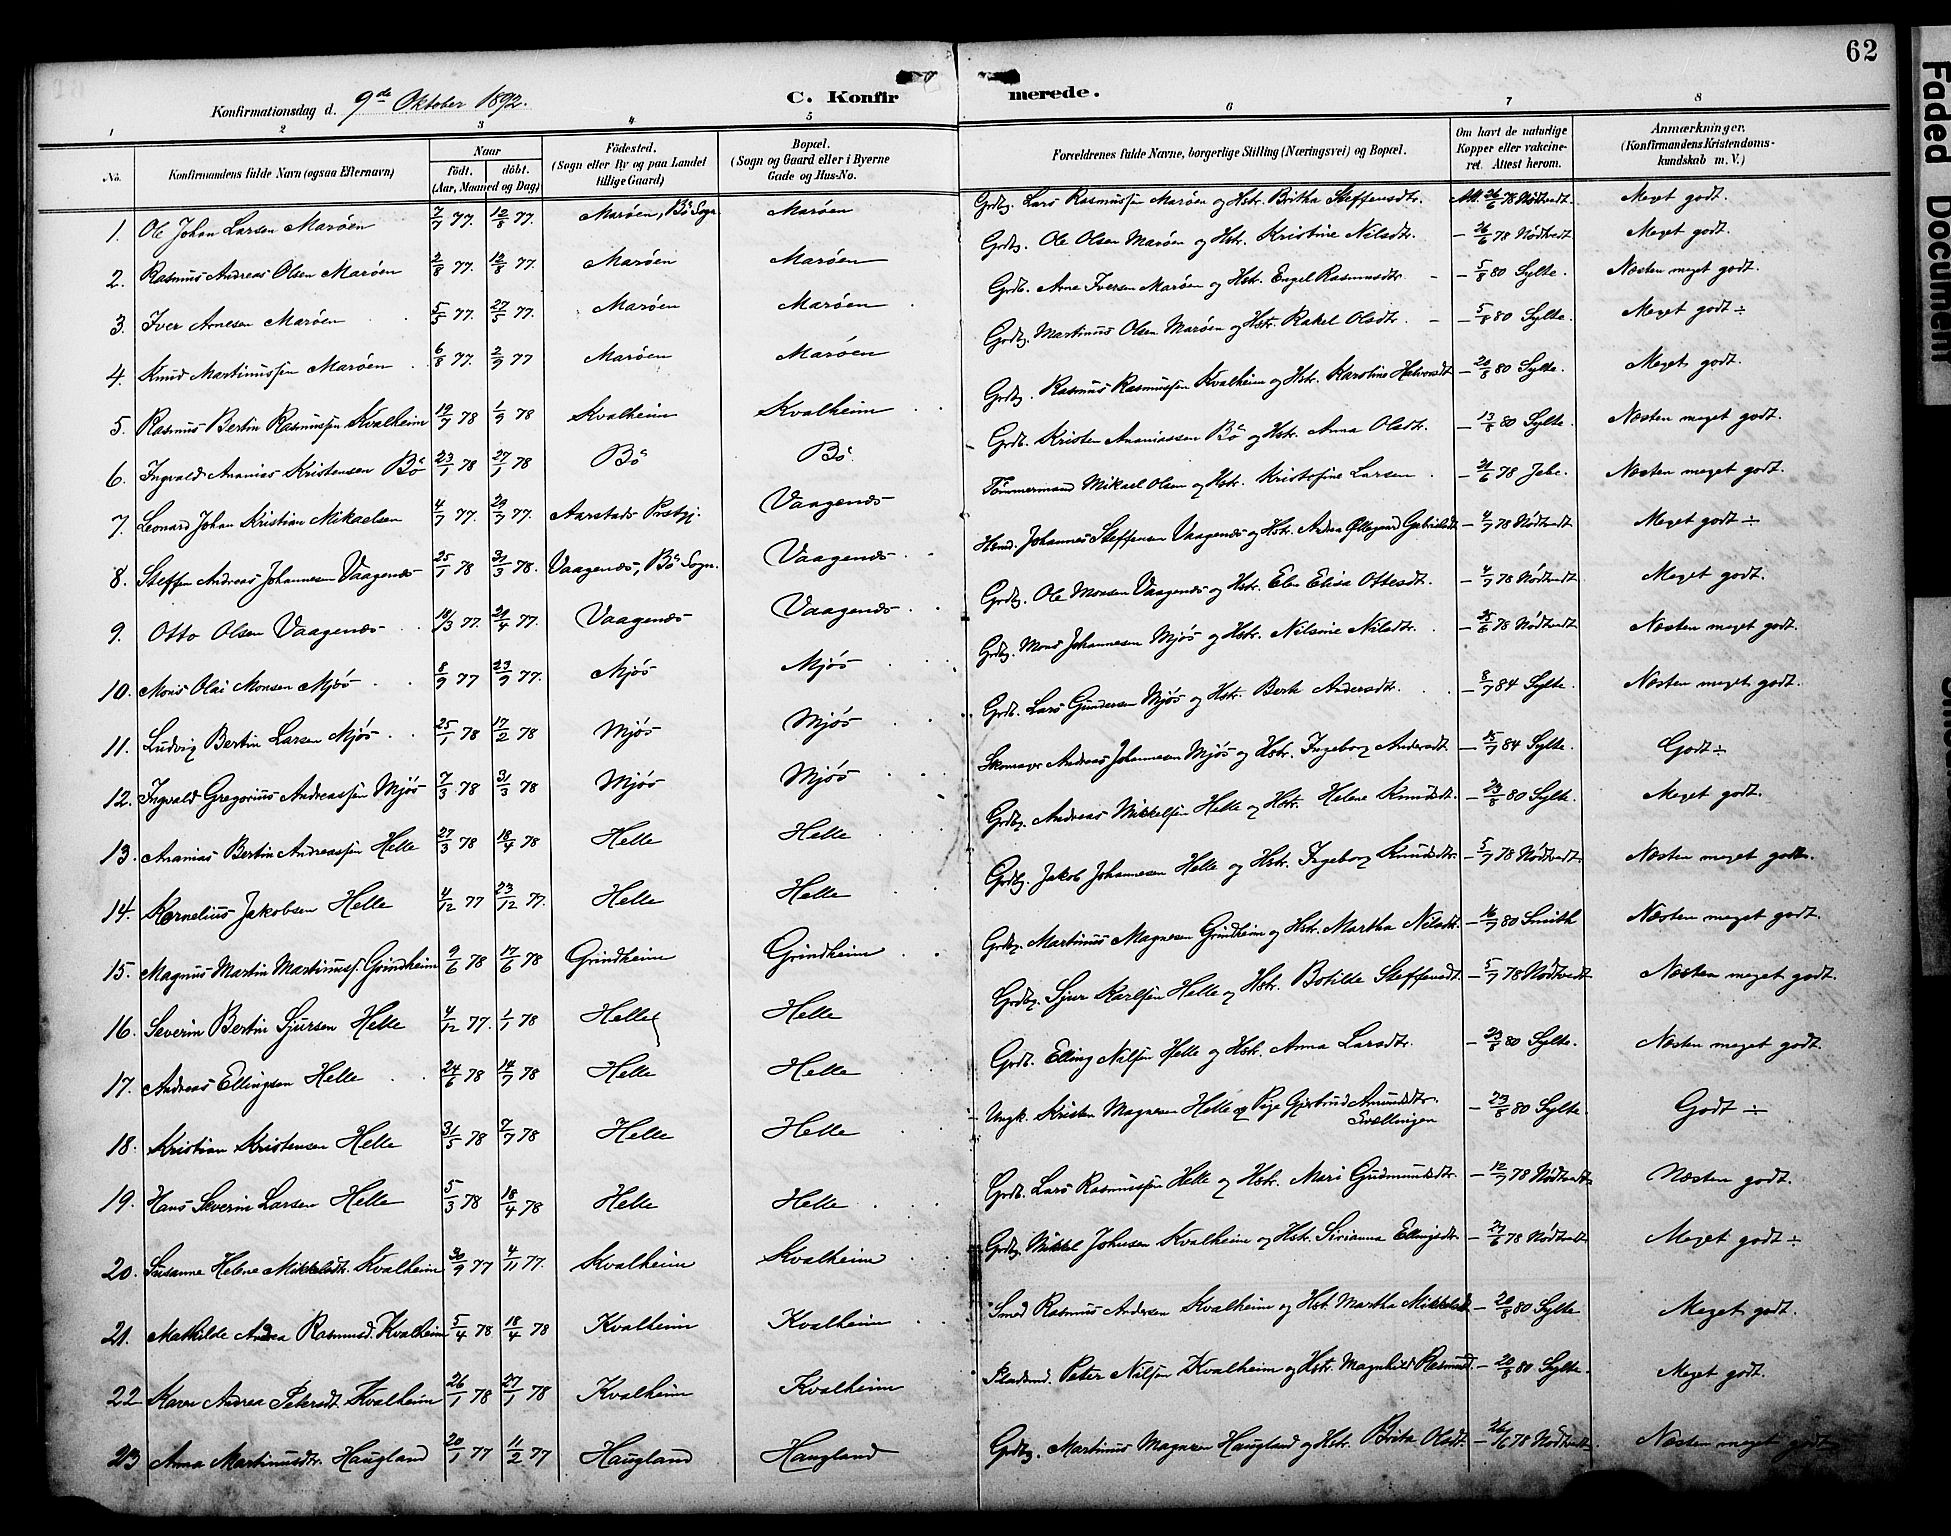 62
Konfirmationsdag d. 9de Oktober 1892.
C. Konfirmerede.
1 2 3 4 5 6 7 8
No. Konfirmandens fulde Navn (ogsaa Efternavn) Naar födt. döbt. (Aar, Maaned og Dag) Födested. (Sogn eller By og paa Landet tillige Gaard) Bopæl. (Sogn og Gaard eller i Byerne Gade og Hus-No. Forældrenes fulde Navne, borgerlige Stilling (Næringsvei) og Bopæl. Om havt de naturlige Kopper eller vakcineret. Attest herom. Anmærkninger. (Konfirmandens Kristendomskundskab m. V.)
1. Ole Johan Larsen Maröen 7/7 77. 12/8 77. Maröen, Bö Sogn Maröen Grdbg. Lars Rasmussen Maröen og Hstr. Britha Steffensdtr. Att. 26/6 78 Nödtvedt. Meget godt.
2. Rasmus Andreas Olsen Maröen 2/8 77. 12/8 77. Maröen Maröen Grdbg. Ole Olsen Maröen og Hstr. Kristine Nilsdtr. - 26/6 78 Nödtvedt Meget godt.
3. Iver Arnesen Maröen 5/5 77. 27/5 77. Maröen Maröen Grdb. Arne Iversen Maröen og Hstr. Engel Rasmusdtr - 5/8 80 Sylte. Næsten meget godt.
4. Knud Martinussen Maröen 6/8 77. 2/9 77 Maröen Maröen Grdbg. Martinus Olsen Maröen og Hstr. Rakel Olsdtr. - 5/8 80 Sylte. Meget godt ÷
5. Rasmus Bertin Rasmussen Kvalheim 19/7 78 1/9 78 Kvalheim Kvalheim Grdbg. Rasmus Rasmussen Kvalheim og Hstr. Karoline Halvorsdt - 20/8 80 Sylte. Meget godt.
6. Ingvald Ananias Kristensen Bö 23/1 78 27/1 78 Bö Bö Grdb. Kristen Ananiassen Bö og Hstr. Anna Olsdtr. - 13/8 80 Sylte. Næsten meget godt.
7. Leonard Johan Kristian Mikaelsen 4/7 77. 29/7 77. Aarstads Prstgj. Vaagenes Tömmermand Mikael Olsen og Hstr. Kristofine Larsen - 21/6 78 Næsten meget godt.
8. Steffen Andreas Johannesen Vaagenes 25/1 78 31/3 78. Vaagenes, Bö Sogn. Vaagenes Hsmd. Johannes Steffensen Vaagenes og Hstr. Andrea Øllegaard Gabrielsdt - 4/7 78 Nödtvedt Meget godt ÷
9. Otto Olsen Vaagenes 19/3 77. 29/4 77. Vaagenes Vaagenes Grdbg. Ole Monsen Vaagenes og Hstr. Elen Elisa Ottesdt. - 4/7 78 Nödtvedt Meget godt.
10. Mons Olai Monsen Mjös 8/9 77 23/9 77. Mjös Mjös Grdbg. Mons Johannesen Mjös og Hstr. Nilsine Nilsdtr. - 25/6 78 Nödtvedt Næsten meget godt.
11. Ludvig Bertin Larsen Mjös 25/1 78 17/2 78 Mjös Mjös Grdb. Lars Gundersen Mjös og Hstr. Berte Andersdtr. - 8/7 84 Sylte. Næsten meget godt.
12. Ingvald Gregorius Andreassen Mjös 7/3 78 31/3 78 Mjös Mjös Skomager Andreas Johannesen Mjös og Hstr. Ingeborg Andersdt - 15/7 84 Sylte. Godt ÷
13. Ananias Bertin Andreassen Helle 27/3 78 18/4 78 Helle Helle Grdbg. Andreas Mikkelsen Helle og Hstr. Helene Knudsdt. - 23/8 80 Sylte. Meget godt.
14. Kornelius Jakobsen Helle 4/12 77 23/12 77. Helle Helle Grdbg. Jakob Johannesen Helle og Hstr. Ingeborg Knudsdtr. - 5/7 78 Nödtvedt. Næsten meget godt.
15. Magnus Martin Martinuss. Grindheim 9/6 78 17/6 78 Grindheim Grindheim Grdbg. Martinus Magnesen Grindheim og Hstr. Martha Nilsdt. - 16/7 80 Smith Næsten meget godt.
16. Severin Bertin Sjursen Helle 4/12 77. 1/1 78 Helle Helle Grdbg. Sjur Karlsen Helle og Hstr. Botilde Steffensdt. - 5/7 78 Nödtvedt Næsten meget godt.
17. Andreas Ellingsen Helle 24/6 78 14/7 78 Helle Helle Grdb. Elling Nilsen Helle og Hstr. Anna Larsdtr. - 23/8 80 Sylte. Næsten meget godt.
18. Kristian Kristensen Helle 31/5 78 7/7 78 Helle Helle Ungk. Kristen Magnesen Helle og Pige Gjertrud Amundsdtr. - 23/8 80 Sylte. Godt ÷
19. Hans Severin Larsen Helle 5/3 78 18/4 78 Helle Helle Grdb. Lars Rasmussen Helle og Hstr. Mari Gudmundsdtr. - 12/7 78 Nödtvedt. Næsten godt.
20. Susanne Helene Mikkelsdt. Kvalheim 30/9 77 4/11 77. Kvalheim Kvalheim Grdbg. Mikkel Johnsen Kvalheim og Hstr. Sirianna Ellingsdt. - 27/6 78 Nödtvedt Meget godt ÷
21. Mathilde Andrea Rasmusd. Kvalheim 5/4 78 18/4 78 Kvalheim Kvalheim Smed Rasmus Andersen Kvalheim og Hstr. Martha Mikkelsdt - 20/8 80 Sylte Meget godt.
22 Karen Andrea Petersdt. Kvalheim 26/1 78 27/1 78 Kvalheim Kvalheim Pladsmd. Peter Nilsen Kvalheim og Hstr. Magnhild Rasmusd. - 20/8 80 Sylte. Meget godt.
23 Anna Martinusdtr. Haugland 20/1 77 11/2 77 Haugland Haugland Grdbg. Martinus Magnesen Haugland og Hstr. Brita Olsdt. - 26/6 78 Nödtvedt. Næsten meget godt
Faded Document